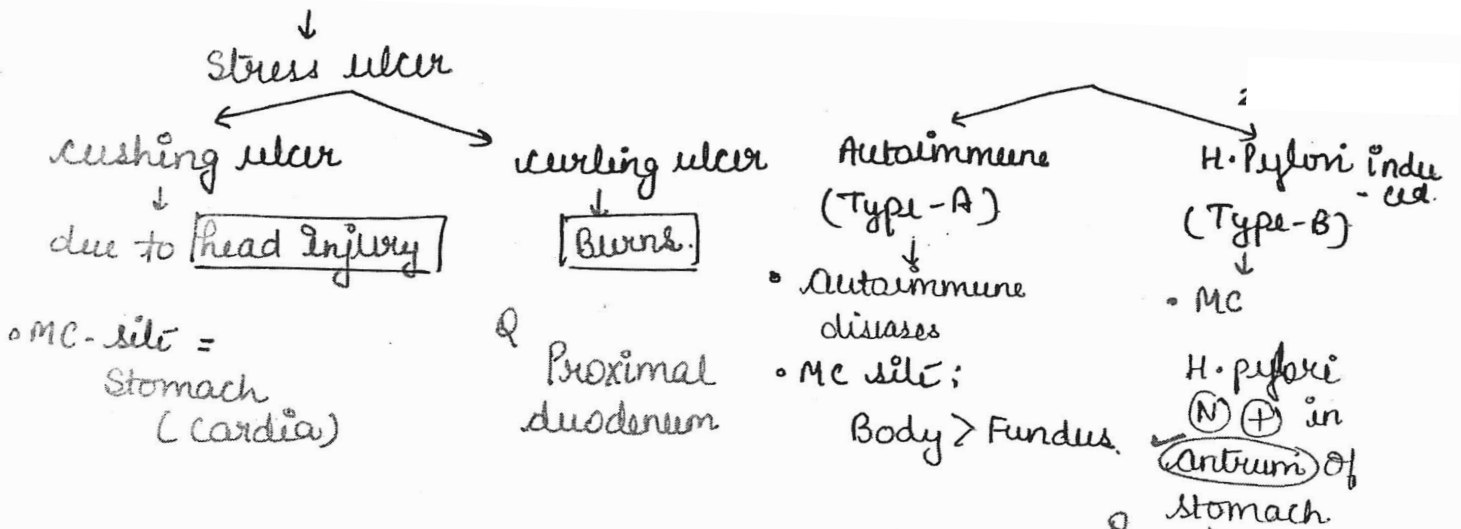 Stress ulcer
cushing ulcer
due to head Injury
• MC - site =
Stomach
(cardia)
curling ulcer
Burns.
Q
Proximal
duodenum
Autoimmune
(Type-A)
• Autoimmune
diseases
• MC site:
Body > Fundus.
2
H. Pylori indu
- ced.
(Type-B)
• MC
H. pylori
(N) (+) in
antrum of
stomach.